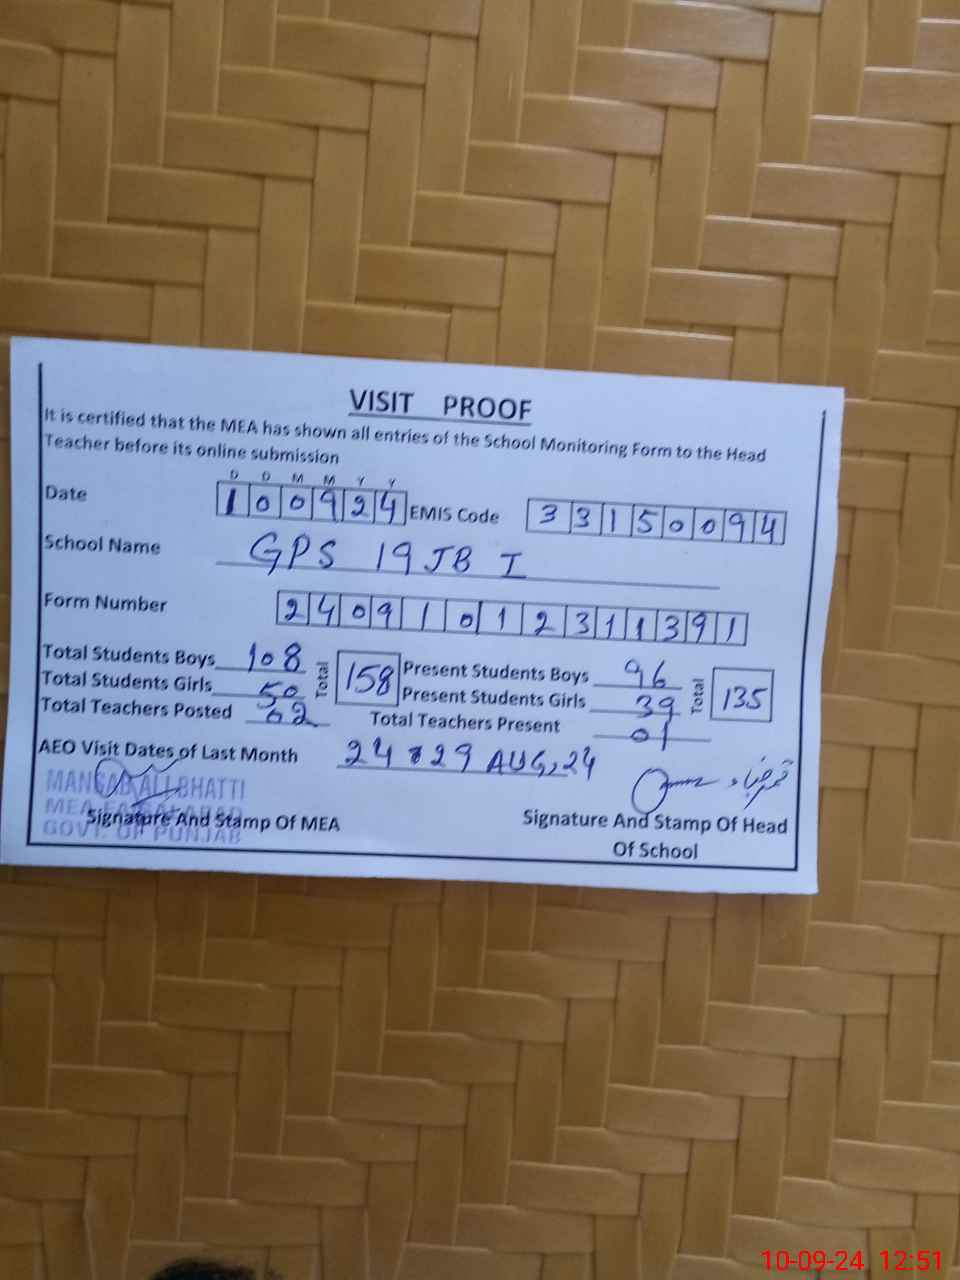 VISIT PROOF
It is certified that the MEA has shown all entries of the School Monitoring Form to the Head
Teacher before its online submission
D D M M Y Y
Date 100924 EMIS Code 33150094
School Name GPS 19 JB I
Form Number 24091012311391
Total Students Boys 108 Total 158 Present Students Boys 96 Total 135
Total Students Girls 50 Present Students Girls 39
Total Teachers Posted 02 Total Teachers Present 01
AEO Visit Dates of Last Month 24 & 29 AUG, 24
MANSAB ALI BHATTI
MEA FAISALABAD
GOVT. OF PUNJAB
Signature And Stamp Of MEA
Signature And Stamp Of Head
Of School
10-09-24 12:51